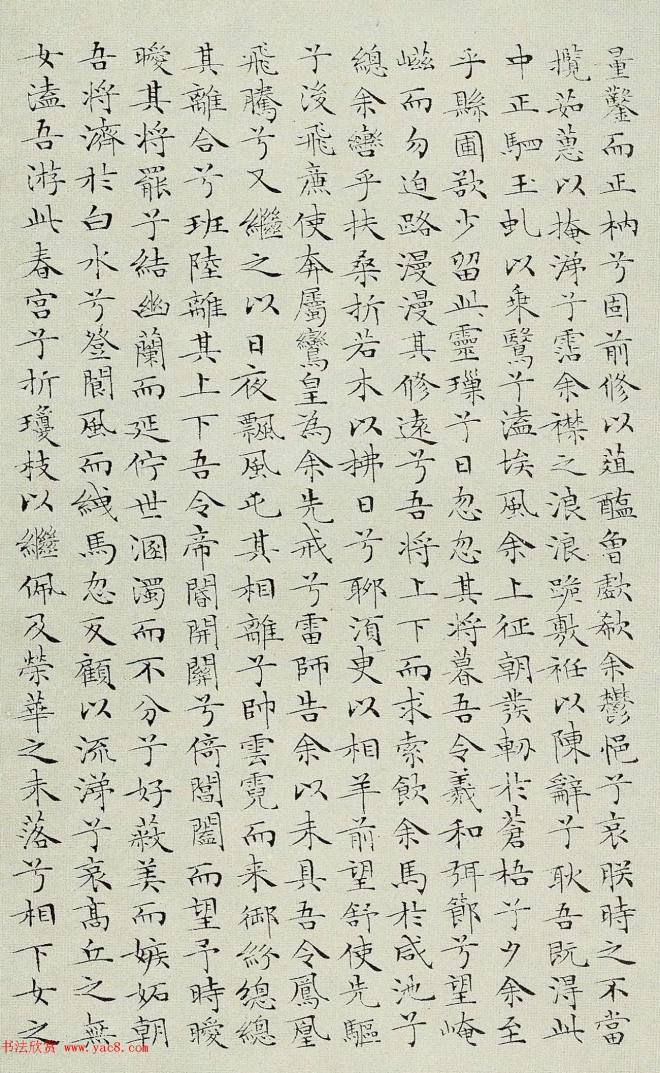 量鑿而正枘兮固前修以菹醢曾歔欷余鬱悒兮哀朕時之不當
攬茹蕙以掩涕兮霑余襟之浪浪跪敷衽以陳辭兮耿吾既得此
中正駟玉虬以乘鷖兮溘埃風余上征朝發軔於蒼梧兮夕余至
乎縣圃欲少留此靈璅兮日忽忽其將暮吾令羲和弭節兮望崦
嵫而勿迫路漫漫其修遠兮吾將上下而求索飲余馬於咸池兮
總余轡乎扶桑折若木以拂日兮聊須臾以相羊前望舒使先驅
兮後飛廉使奔屬鸞皇為余先戒兮雷師告余以未具吾令鳳凰
飛騰兮又繼之以日夜飄風屯其相離兮帥雲霓而来御紛總總
其離合兮班陸離其上下吾令帝閽開關兮倚閶闔而望予時曖
曖其將罷兮結幽蘭而延佇世溷濁而不分兮好蔽美而嫉妬朝
吾將濟於白水兮登閬風而緤馬忽反顧以流涕兮哀高丘之無
女溘吾游此春宮兮折瓊枝以繼佩及榮華之未落兮相下女之
书法欣赏 www.yac8.com